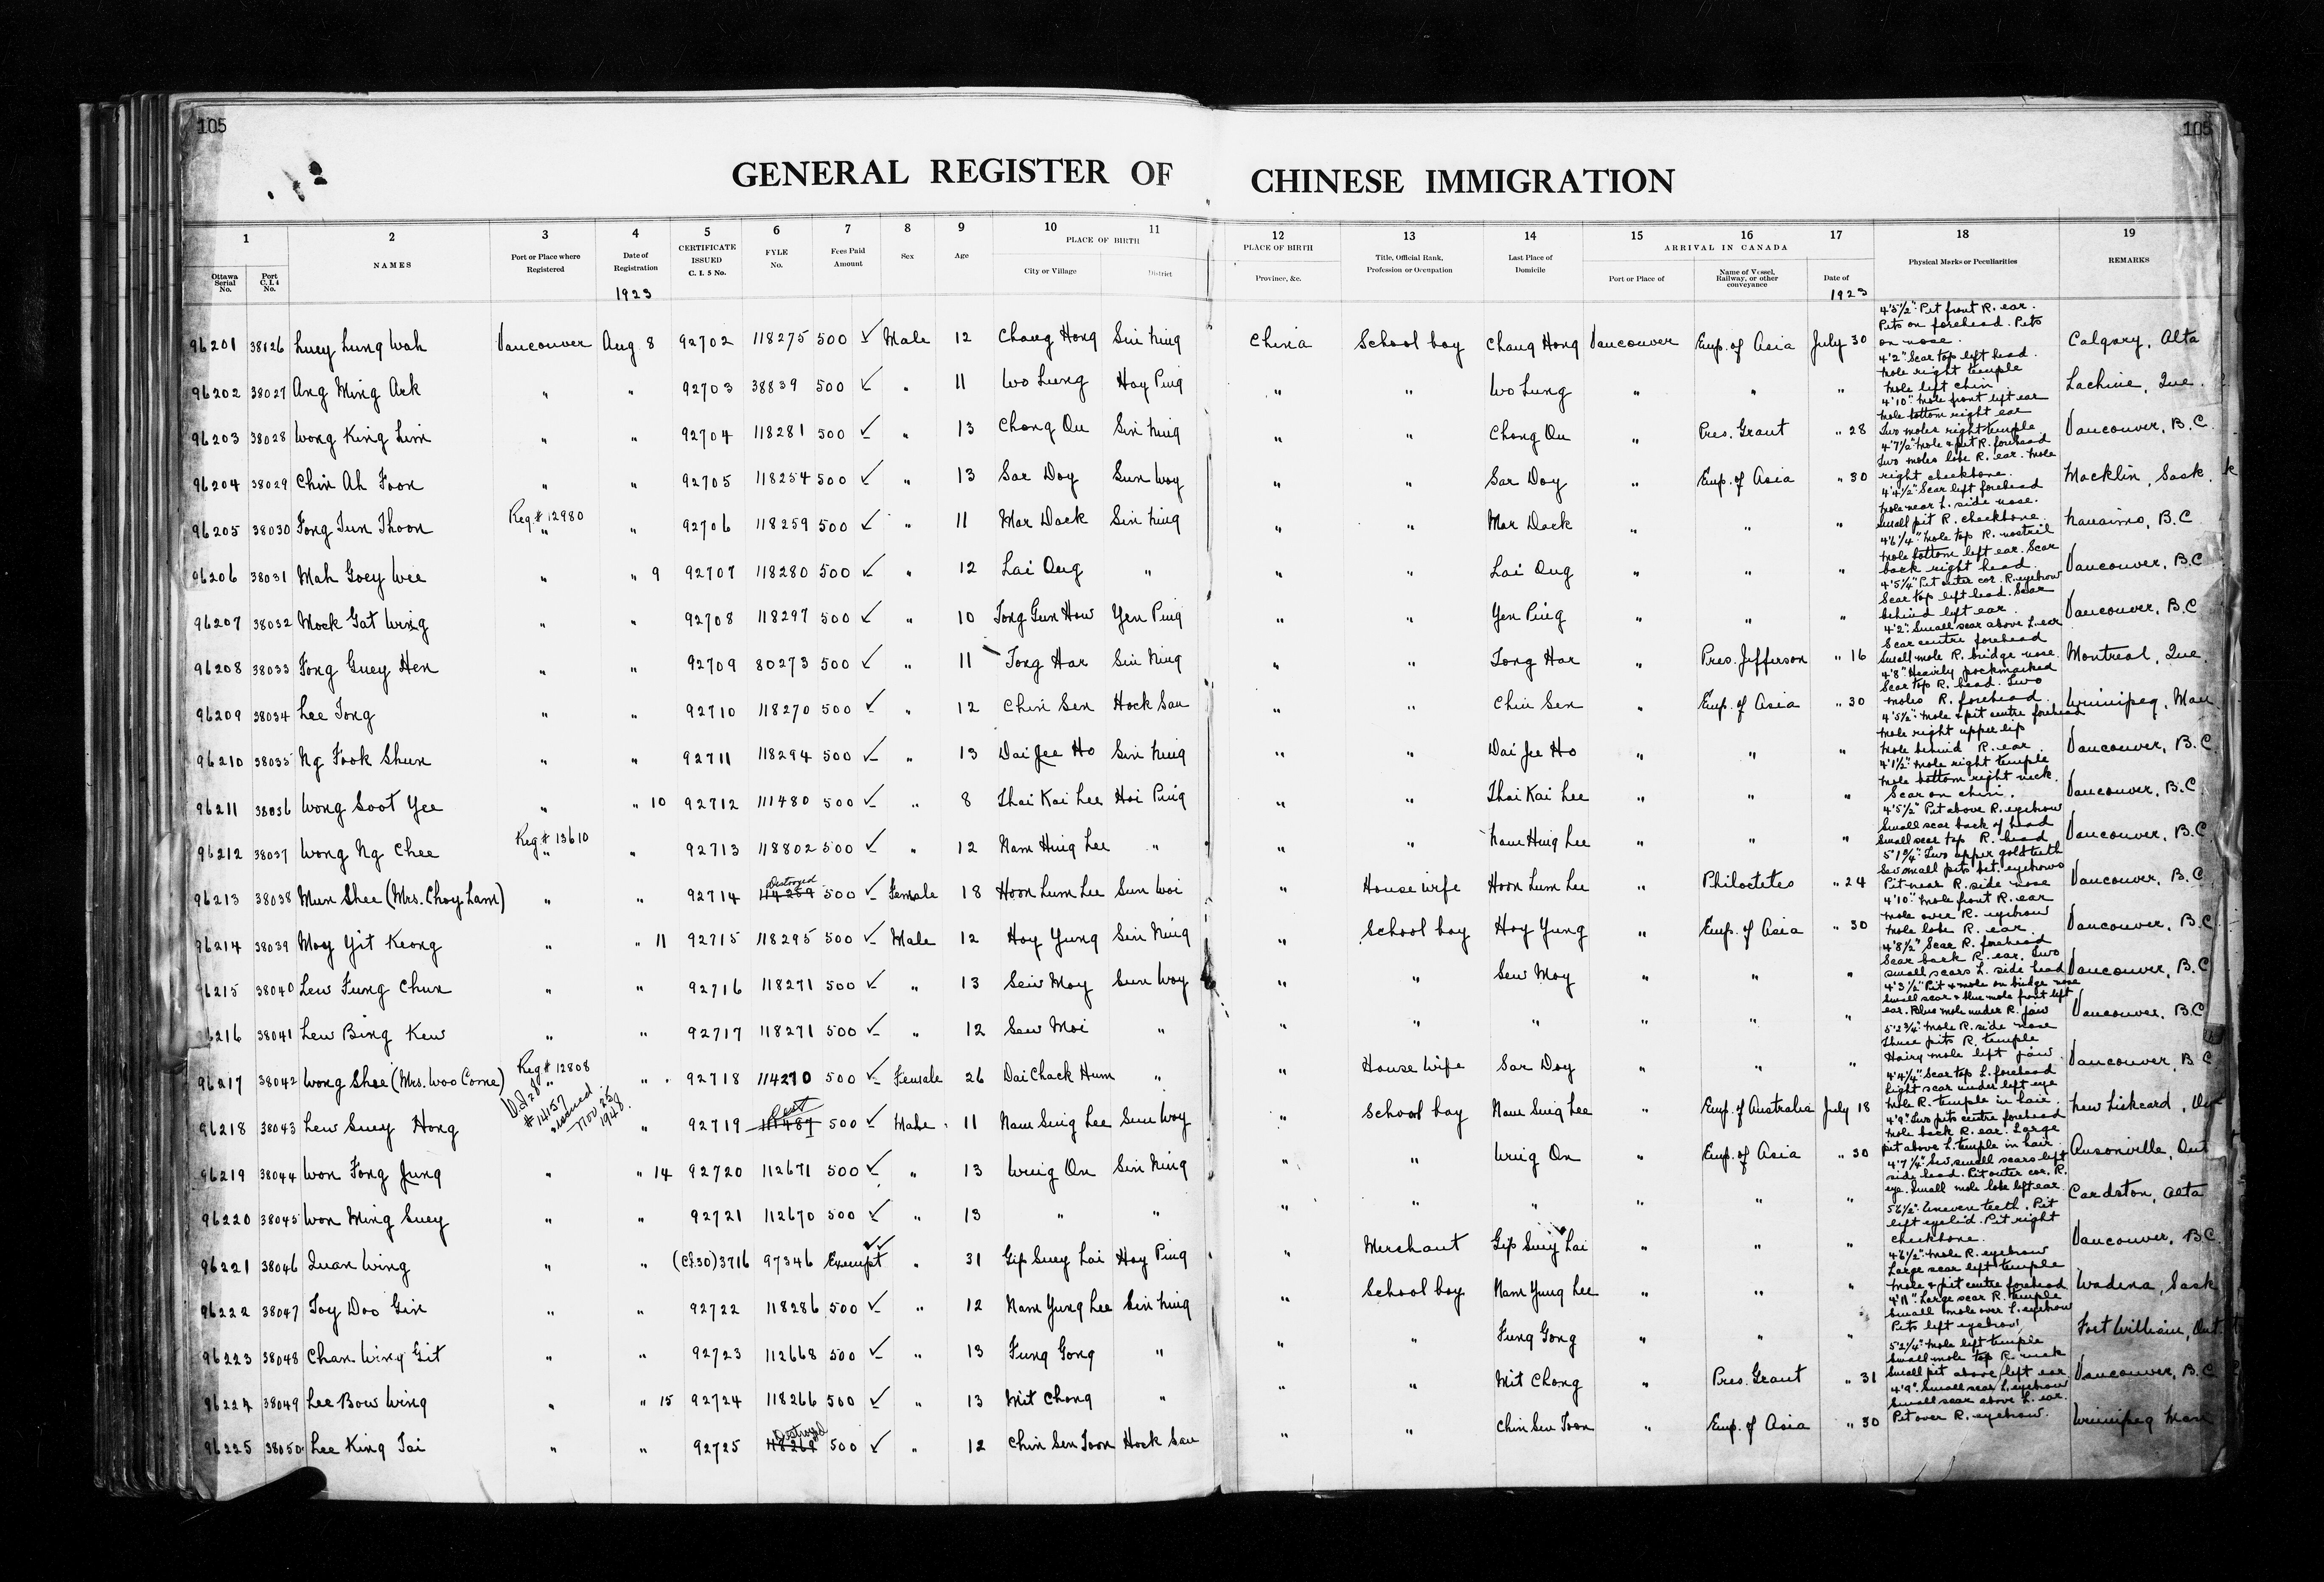 105
105
GENERAL REGISTER OF CHINESE IMMIGRATION
1 2 3 4 5 6 7 8 9 10 11 12 13 14 15 16 17 18 19
Ottawa Serial No. Port C.I.4 No. NAMES Port or Place where Registered Date of Registration CERTIFICATE ISSUED C. I. 5 No. FYLE No. Fees Paid Amount Sex Age PLACE OF BIRTH City or Village District PLACE OF BIRTH Province, &c. Title, Official Rank, Profession or Occupation Last Place of Domicile ARRIVAL IN CANADA Port or Place of Name of Vessel, Railway, or other conveyance Date of Physical Marks or Peculiarities REMARKS
1923 1923
96201 38126 Luey Lung Wah Vancouver Aug 8 92702 118275 500 ✓ Male 12 Chang Hong Sin Ning China School boy Chang Hong Vancouver Emp. of Asia July 30 4'5½" Pit front R. ear. Pits on forehead. Pits on nose. Calgary, Alta
96202 38027 Ang Ming Ark " " 92703 38839 500 ✓ " 11 Wo Lung Hoy Ping " " Wo Lung " " " 4'2" Scar top left head. Mole right temple Mole left chin Lachine, Que.
96203 38028 Wong King Lim " " 92704 118281 500 ✓ " 13 Chong On Sin Ning " " Chong On " Pres. Grant " 28 4'10" Mole front left ear Mole bottom right ear Two moles right temple Vancouver, B.C.
96204 38029 Chin Ah Foon " " 92705 118254 500 ✓ " 13 Sar Doy Sun Woy " " Sar Doy " Emp. of Asia " 30 4'7½" Mole & pit R. forehead Two moles lobe R. ear. Mole right cheekbone. Macklin, Sask.
96205 38030 Fong Tun Thoon Reg # 12980 " " 92706 118259 500 ✓ " 11 Mar Dack Sin Ning " " Mar Dack " " " 4'4½" Scar left forehead Mole near L. side nose. Small pit R. cheekbone Nanaimo, B.C
96206 38031 Mah Goey Wee " " 9 92707 118280 500 ✓ " 12 Lai Ong " " " Lai Ong " " " 4'6¼" Mole top R. nostril Mole bottom left ear. Scar back right head Vancouver, B.C
96207 38032 Mock Gat Wing " " 92708 118297 500 ✓ " 10 Tong Gun How Yen Ping " " Yen Ping " " " 4'5¼" Pit outer cor. R. eyebrow Scar top left head. Scar behind left ear. Vancouver, B.C
96208 38033 Fong Guey Hen " " 92709 80273 500 ✓ " 11 Tong Har Sin Ning " " Tong Har " Pres. Jefferson " 16 4'2" Small scar above L. ear Scar centre forehead Small mole R. bridge nose. Montreal, Que.
96209 38034 Lee Tong " " 92710 118270 500 ✓ " 12 Chin Sen Hock San " " Chin Sen " Emp. of Asia " 30 4'8" Heavily pockmarked Scar top R. head. Two moles R. forehead. Winnipeg, Man
96210 38035 Ng Fook Shun " " 92711 118294 500 ✓ " 13 Dai Jee Ho Sin Ning " " Dai Jee Ho " " " 4'5½" Mole & pit centre forehead Mole right upper lip Mole behind R. ear Vancouver, B.C.
96211 38036 Wong Soot Yee " " 10 92712 111480 500 ✓ " 8 Thai Kai Lee Hoi Ping " " Thai Kai Lee " " " 4'1½" Mole right temple Mole bottom right neck. Scar on chin. Vancouver, B.C.
96212 38037 Wong Ng Chee Reg # 13610 " " 92713 118802 500 ✓ " 12 Nam Hing Lee " " " Nam Hing Lee " " " 4'5½" Pit above R. eyebrow Small scar back of head Small scar top R. head Vancouver, B.C.
96213 38038 Mun Shee (Mrs. Choy Lam) " " 92714 Destroyed 114259 500 ✓ Female 18 Hoon Lum Lee Sun Woi " House wife Hoon Lum Lee " Philoctetes " 24 5'1¾" Two upper gold teeth Sev small pits bet. eyebrows Pit near R. side nose Vancouver, B.C.
96214 38039 Moy Yit Keong " " 11 92715 118295 500 ✓ Male 12 Hoy Yung Sin Ning " School boy Hoy Yung " Emp. of Asia " 30 4'10" Mole front R. ear Mole over R. eyebrow Mole lobe R. ear. Vancouver, B.C.
96215 38040 Lew Fung Chun " " 92716 118271 500 ✓ " 13 Sew Moy Sun Woy " " Sew Moy " " " 4'8½" Scar R. forehead Scar back R. ear. Two small scars L. side head Vancouver, B.C
96216 38041 Lew Bing Kew " " 92717 118271 500 ✓ " 12 Sew Moi " " " " " " " 4'3½" Pit & mole on bridge nose Small scar & blue mole front left ear. Blue mole under R. jaw Vancouver, B.C
96217 38042 Wong Shee (Mrs. Woo Come) Reg # 12808 " " " 92718 114270 500 ✓ Female 26 Dai Chack Hum " " House wife Sar Doy " " " 5'2¾" Mole R. side nose Three pits R. temple Hairy mole left jaw. Vancouver, B C
96218 38043 Lew Suey Hong # 14157 issued Nov 25, 1948. " 92719 500 ✓ Male 11 Nam Sing Lee Sun Woy " School boy Nam Sing Lee " Emp. of Australia July 18 4'4¼" Scar top L. forehead Light scar under left eye Mole R. temple in hair. New Liskeard, Ont
96219 38044 Won Fong Jung " " 14 92720 112671 500 ✓ " 13 Wing On Sin Ning " " Wing On " Emp. of Asia " 30 4'9" Two pits centre forehead Mole back R. ear. Large pit above L. temple in hair. Ansonville, Ont
96220 38045 Won Ming Suey " " 92721 112670 500 ✓ " 13 " " " " " " " " 4'7¼" Sev. small scars left side head. Pit outer cor. R. eye. Small mole lobe left ear. Cardston, Alta
96221 38046 Quan Wing " " (C.I.30) 3716 97346 Exempt ✓✓ " 31 Gip Suey Lai Hoy Ping " Merchant Gip Suey Lai " " " 5'6½" Uneven teeth. Pit left eyelid. Pit right cheekbone. Vancouver, B.C.
96222 38047 Toy Doo Gin " " 92722 118286 500 ✓ " 12 Nam Yung Lee Sin Ning " School boy Nam Yung Lee " " " 4'6½" Mole R. eyebrow Large scar left temple Mole & pit centre forehead Wadena, Sask
96223 38048 Chan Wing Git " " 92723 112668 500 ✓ " 13 Fung Gong " " " Fung Gong " " " 4'11" Large scar R. temple Small mole over L. eyebrow Pits left eyebrow Fort William, Ont
96224 38049 Lee Bow Wing " " 15 92724 118266 500 ✓ " 13 Mit Chong " " " Mit Chong " Pres. Grant " 31 5'2¼" Mole left temple Small mole top R. neck Small pit above left ear Vancouver, B.C
96225 38050 Lee King Tai " " 92725 Destroyed 118269 500 ✓ " 12 Chin Sen Toon Hock San " " Chin Sen Toon " Emp. of Asia " 30 4'9" Small scar L. eyebrow Small scar above L. ear. Pit over R. eyebrow. Winnipeg Man